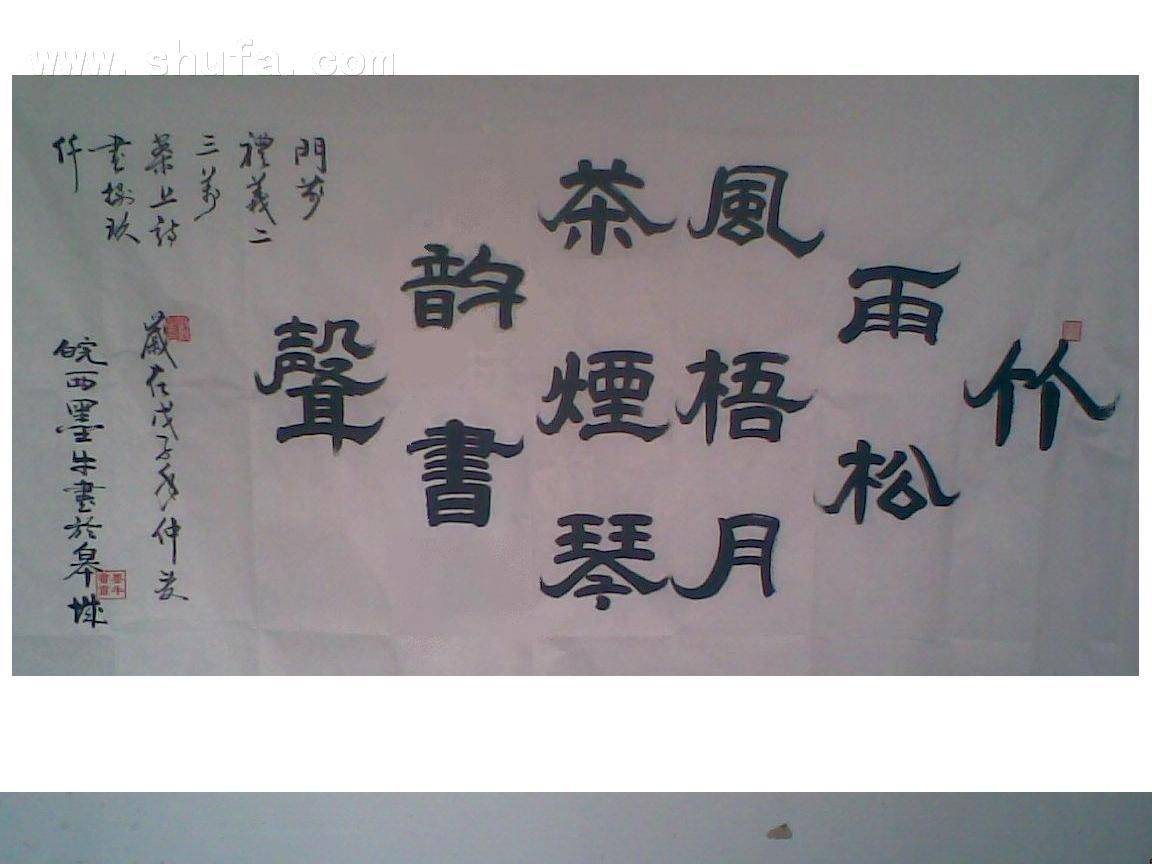 www.shufa.com
竹
雨松
風梧月
茶煙琴
韵書
聲
門前
禮義二
三萬
案上詩
書捌玖
仟
歲在戊子年仲夏
皖西墨牛書於皋城